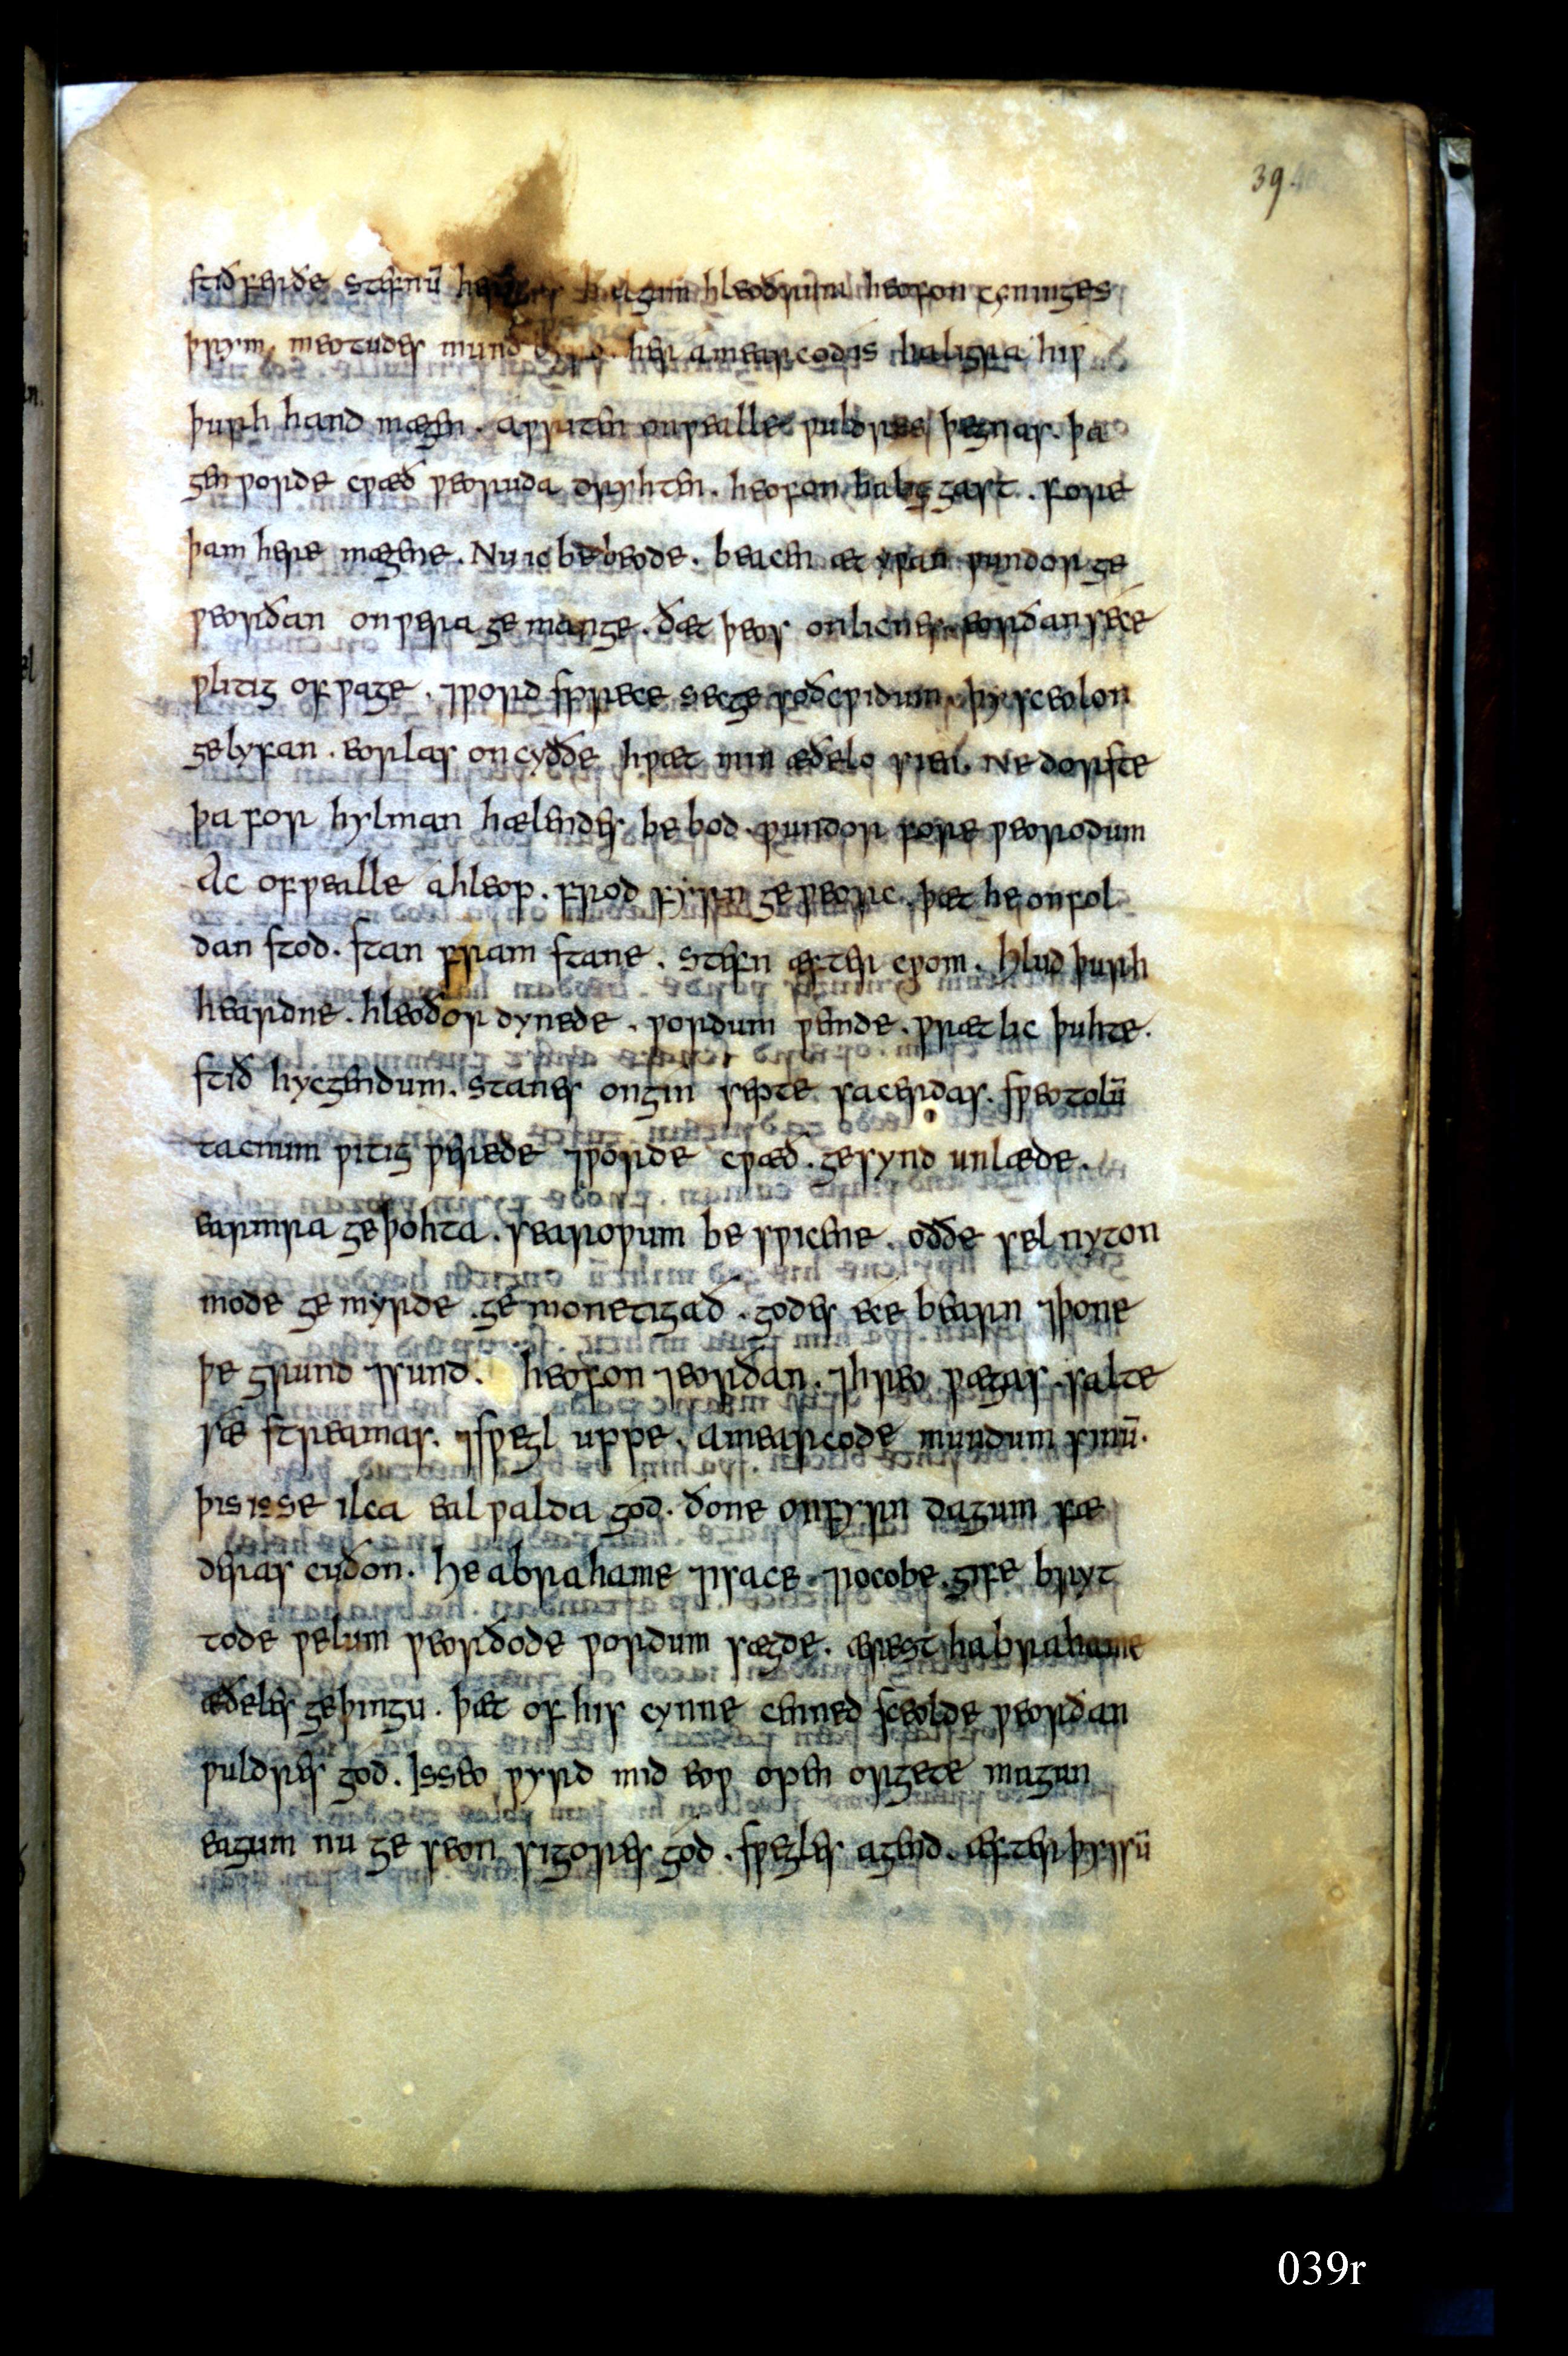 39
stiðferðe stefnū herigað halgum hleoðrum heofon cyninges
þrym, meotudes mund byrd. her amearcod is haligra hiw
þurh hand mægen. awriten on wealle wuldres þegnas. þa
gen worde cwæð weoruda dryhten. heofon halig gast. fore
þam here mægene. Nu ic bebeode. beacen æt ywan wundor ge
weorðan on wera ge mange. ðæt þeos onlicnes eorðan sece
wlitig of wage. ⁊ word sprece secge soðcwidum þy sceolon
gelyfan. eorlas on cyððe hwæt min æðelo sien. Ne dorste
þa for hylman hælendes be bod. wundor fore weorodum
Ac of wealle ahleop. frod fyrn ge weorc. þæt he on fol
dan stod. stan fram stane. stefn æfter cwom. hlud þurh
heardne. hleoðor dynede. wordum wende. wræt lic þuhte.
stið hycgendum. stanes ongin septe sacerdas. sweotolū
tacnum witig werede ⁊ worde cwæð. ge synd unlæde.
earmra geþohta. searowum be swicene. oððe sel nyton
mode ge myrde. ge mon etigað. godes ece bearn ⁊ þone
þe grund ⁊ sund. heofon ⁊ eorðan. ⁊ hreo wægas. salte
sæ streamas. ⁊ swegl uppe. amearcode mundum sinū.
þis is se ilca eal walda god. ðone on fyrn dagum fæ
deras cuðon. he abrahame ⁊ isace. ⁊ iocobe. gife bryt
tode welum weorðode wordum sægde. ærest habrahame
æðeles geþingu. þæt of his cynne cenned sceolde weorðan
wuldres god. Is seo wyrd mid eow open orgete magan
eagum nu ge seon sigores god. swegles agend. æfter þyssū
039r